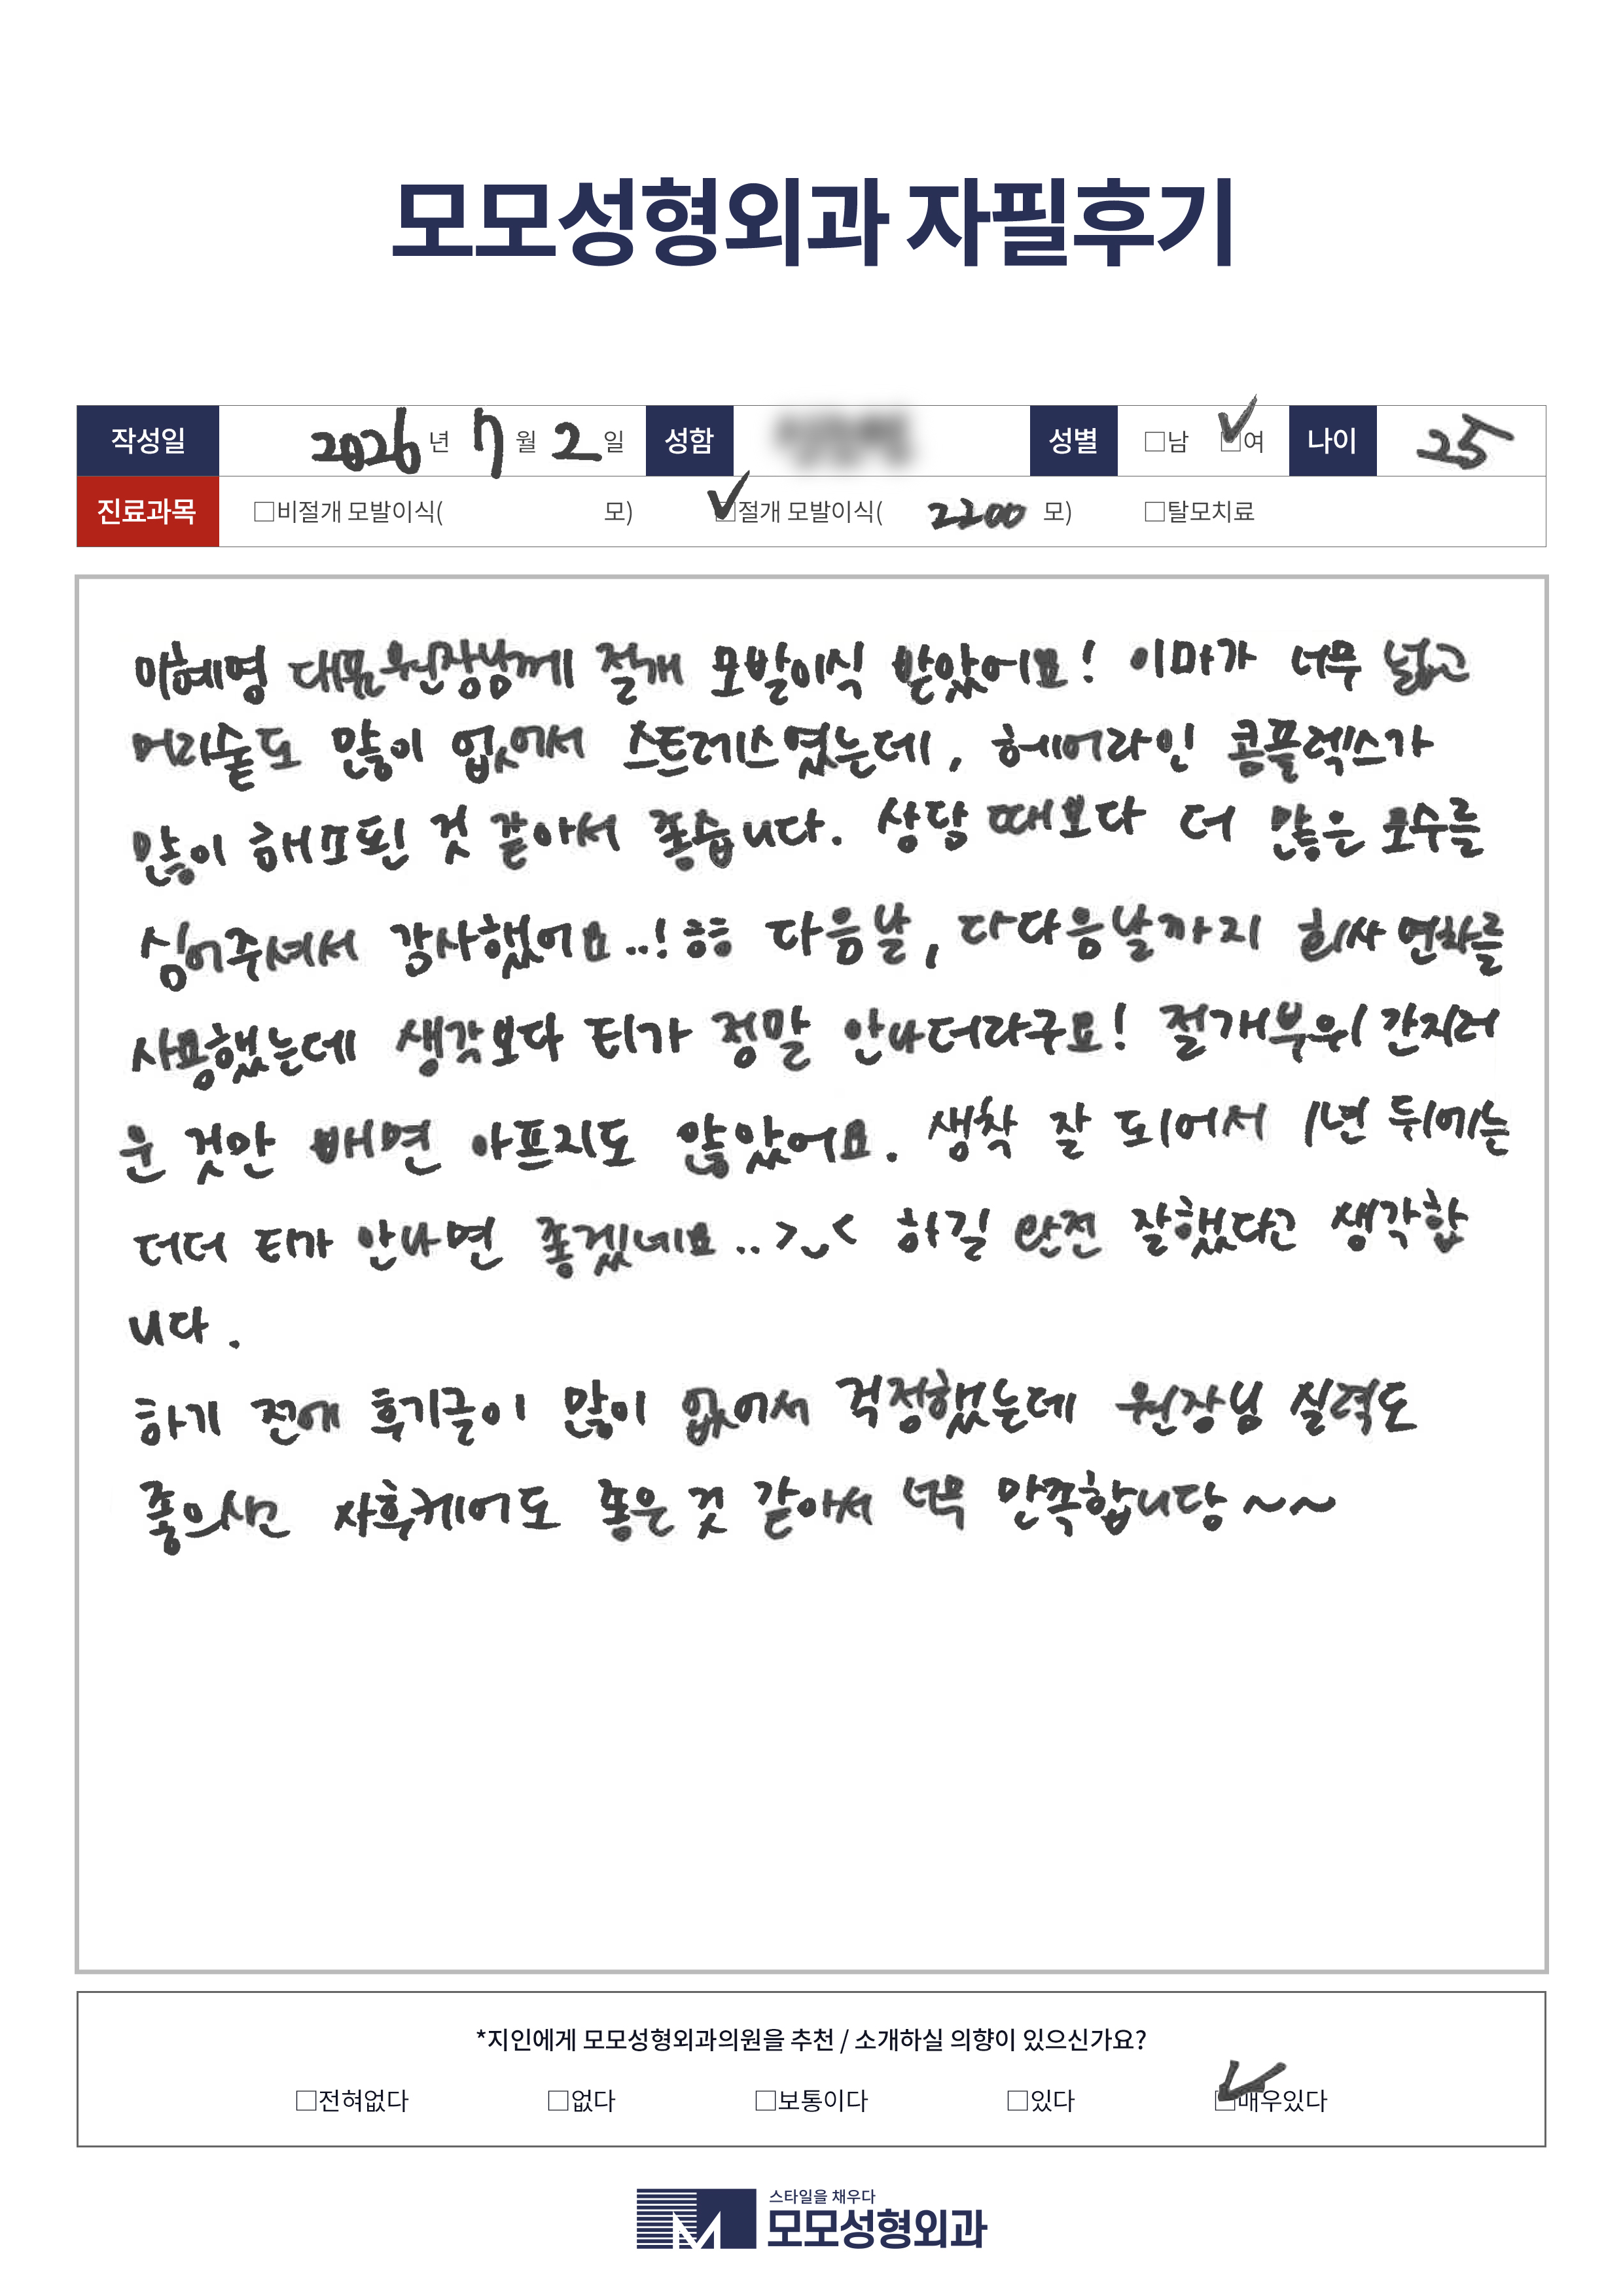 모모성형외과 자필후기
작성일 2026 년 7 월 2 일 성함 성별 □남 □여 나이 25
진료과목 □비절개 모발이식( 모) □절개 모발이식( 2200 모) □탈모치료
마혜영 대표원장님께 절개 모발이식 받았어요! 이마가 너무 넓고
머리숱도 많이 없어서 스트레스였는데, 헤어라인 콤플렉스가
많이 해소된 것 같아서 좋습니다. 상담 때보다 더 많은 모수를
심어주셔서 감사했어요..! ㅎㅎ 다음날, 다다음날까지 회사 연차를
사용했는데 생각보다 티가 정말 안나더라구요! 절개부위 간지러
운 것만 빼면 아프지도 않았어요. 생착 잘 되어서 1년 뒤에는
더더 티가 안나면 좋겠네요..>_< 하길 완전 잘했다고 생각합
니다.
하기 전에 후기글이 많이 없어서 걱정했는데 원장님 실력도
좋으시고 사후케어도 좋은 것 같아서 너무 만족합니당~~
*지인에게 모모성형외과의원을 추천 / 소개하실 의향이 있으신가요?
□전혀없다 □없다 □보통이다 □있다 □매우있다
스타일을 채우다
모모성형외과